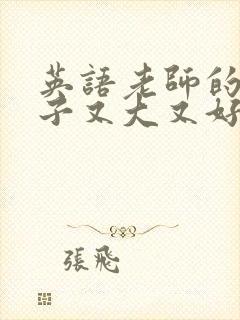 英語老師的
子又大又好
張飛